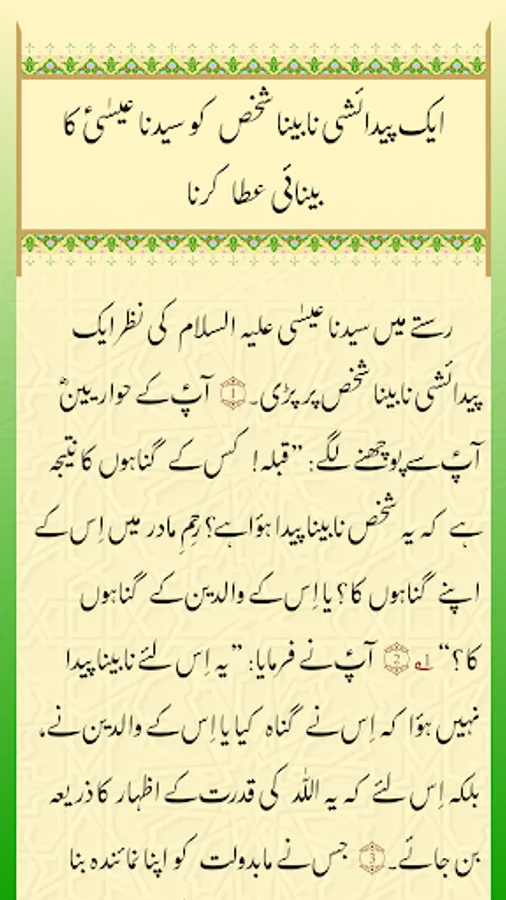 ایک پیدائشی نابینا شخص کو سیدنا عیسٰیؑ کا
بینائی عطا کرنا
رستے میں سیدنا عیسٰی علیہ السلام کی نظر ایک
پیدائشی نابینا شخص پر پڑی۔ 1 آپؑ کے حواریینؓ
آپؑ سے پوچھنے لگے: ”قبلہ! کس کے گناہوں کا نتیجہ
ہے کہ یہ شخص نابینا پیدا ہؤا ہے؟ رحِمِ مادر میں اِس کے
اپنے گناہوں کا؟ یا اِس کے والدین کے گناہوں
کا؟“ لہ 2 آپؑ نے فرمایا: ”یہ اِس لئے نابینا پیدا
نہیں ہؤا کہ اِس نے گناہ کیا یا اِس کے والدین نے،
بلکہ اِس لئے کہ یہ اللہ کی قدرت کے اظہار کا ذریعہ
بن جائے۔ 3 جس نے مابدولت کو اپنا نمائندہ بنا